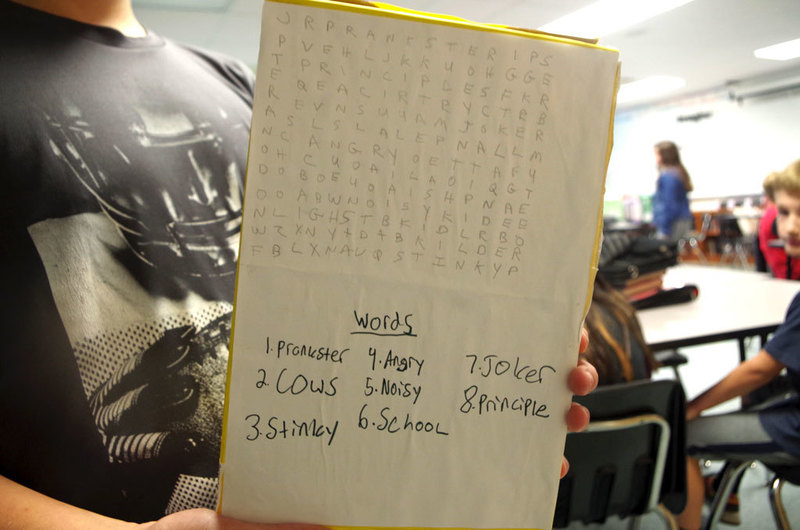 J R P R A N K S T E R I P S
P V E H L J K K U O H G G E
T P R I N C I P L E S F K R
E Q E A C I R T R Y C T R B
R E V N S U U A M J O K E R
A S L S L A L E P N A L L M
N C A N G R Y O E T T A F Y
O H C U O A I L A O I Q G T
D O B O E U O A I S H P N A E
O O A B W N O I S Y K I D E E
N L I G H S T B K I D L R B O
W Z X N Y + D + B K I L D E R
F B L X N A V Q S T I N K Y P
Words
1. Prankster 4. Angry 7. Joker
2. Cows 5. Noisy 8. Principle
3. Stinky 6. School